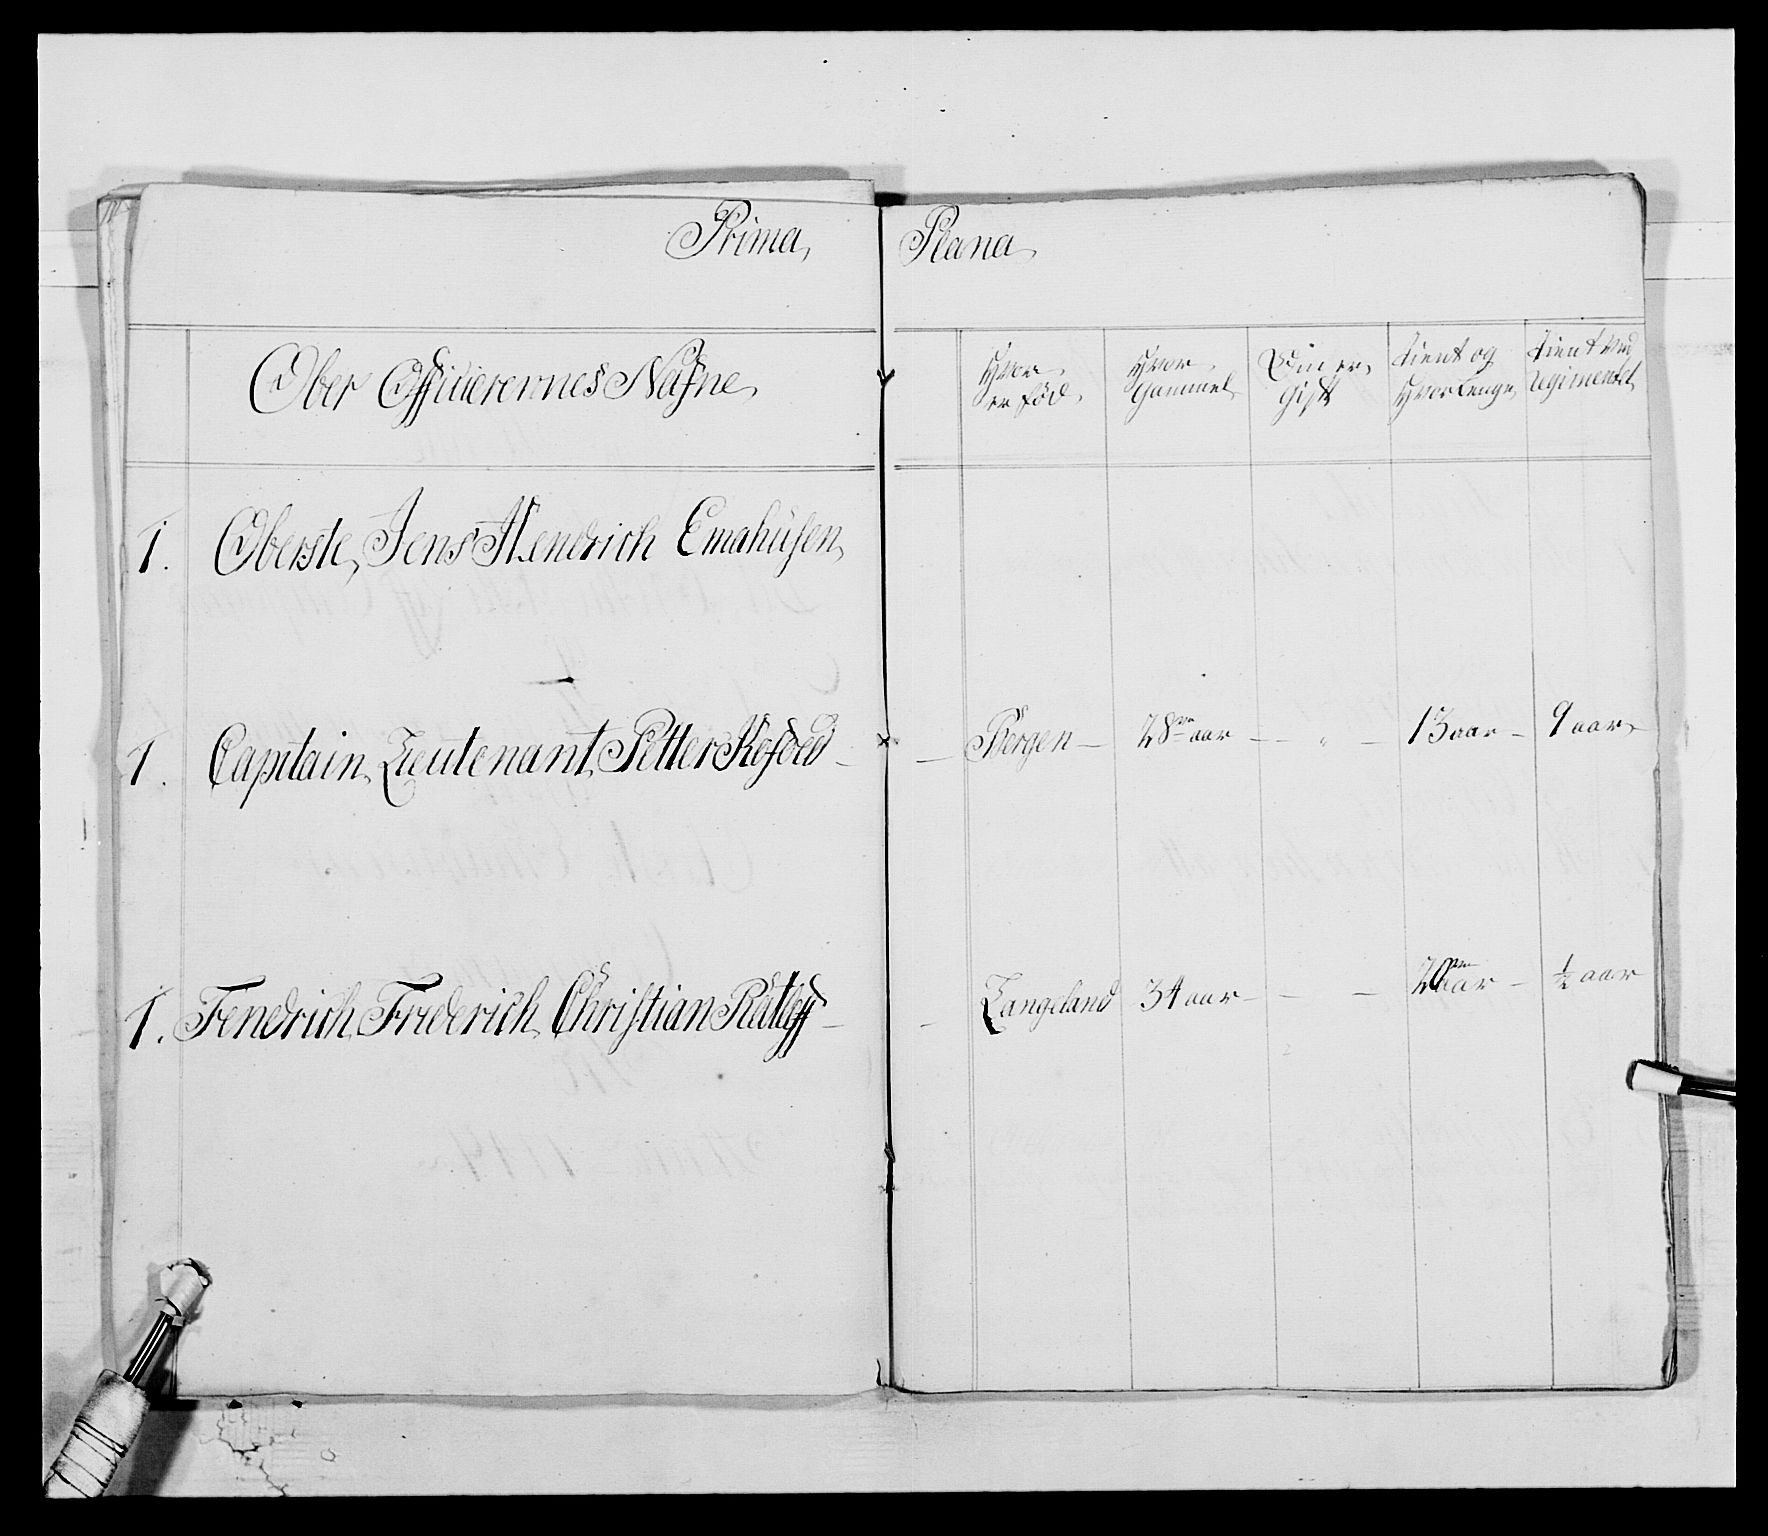 Prima Plana
Ober Officierernes Nafne
Hvor er fød
Hvor Gammel
Om er Gift
Tient og Hvorlenge
Tient ved Regimentet
1. Oberste Jens Hendrich Emahusen
1. Capitain Lieutenant Petter Kofoed – Bergen – 28 aar – „ – 13 aar – 9 aar
1. Fendrich Friderich Christian Ratleff – Langeland 34 aar – – 20 aar – ½ aar